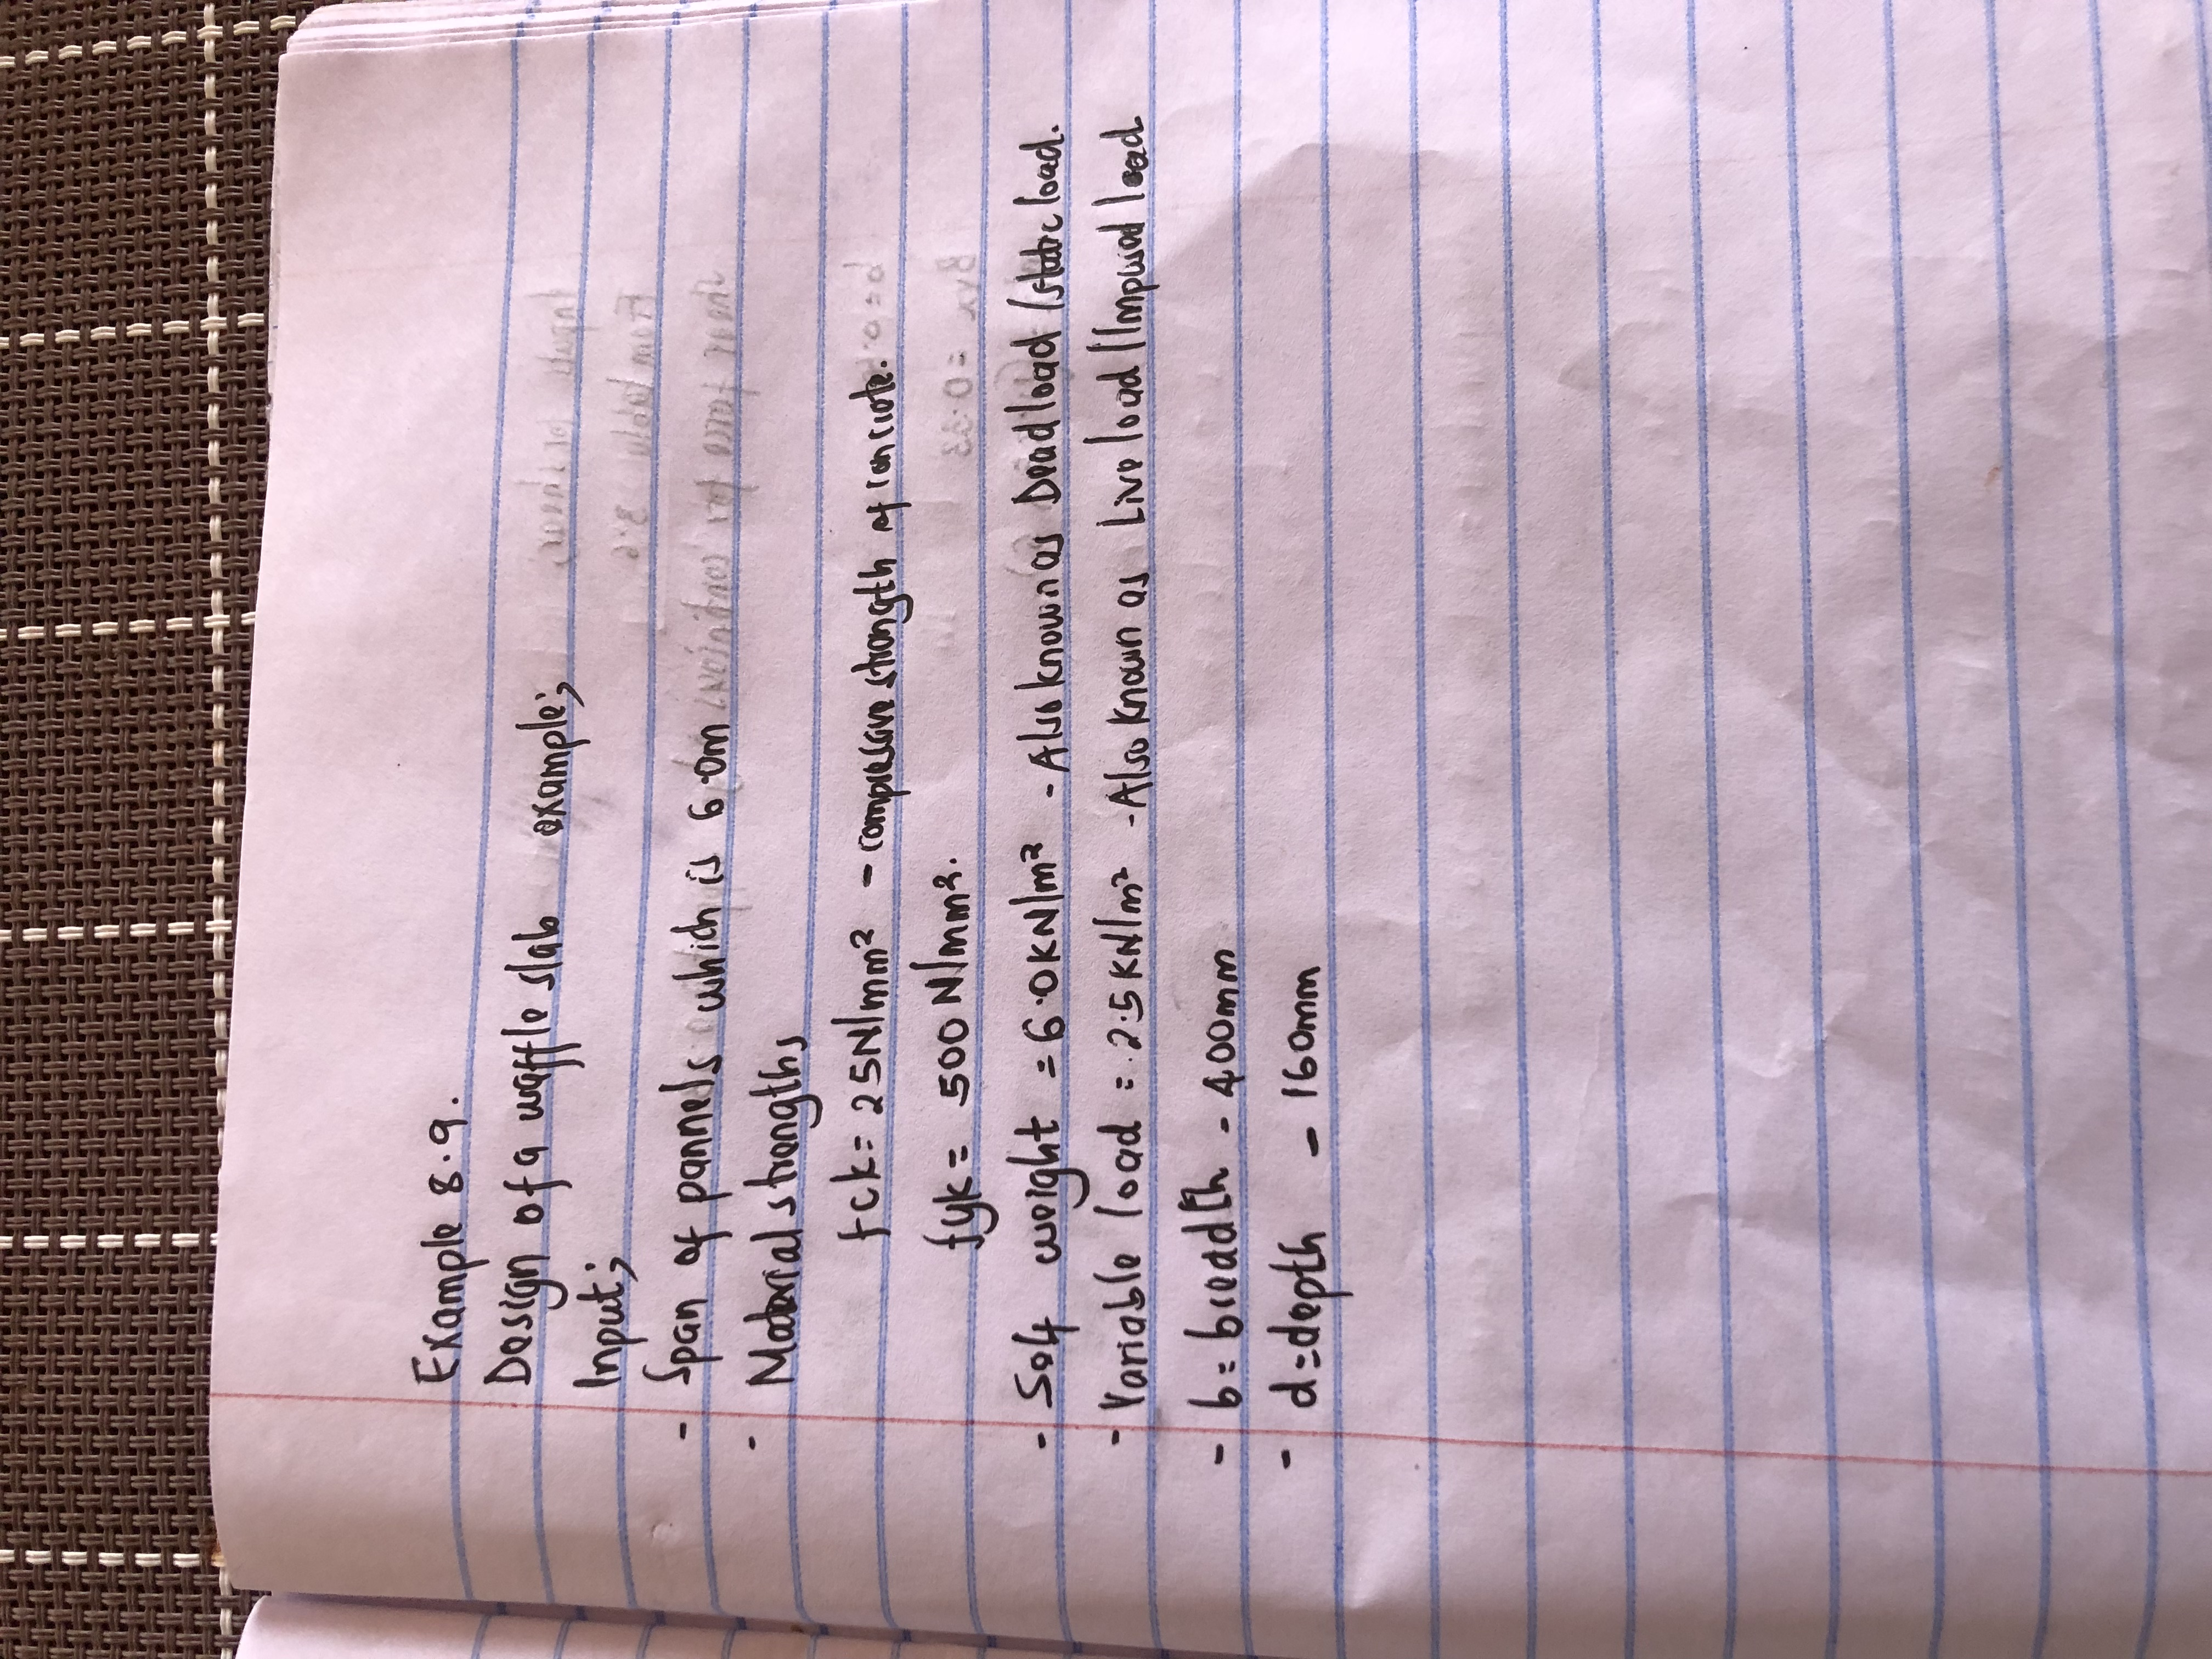 Example 8.9.
Design of a waffle slab example;
Input;
- Span of pannels which is 6.0m
- Material strengths
fck = 25N/mm² - compressive strength of concrete.
fyk = 500 N/mm².
- Self weight = 6.0KN/m² - Also known as Dead load / static load.
- Variable load = 2.5KN/m² - Also known as Live load / Imposed load.
- b = breadth - 400mm
- d = depth - 160mm